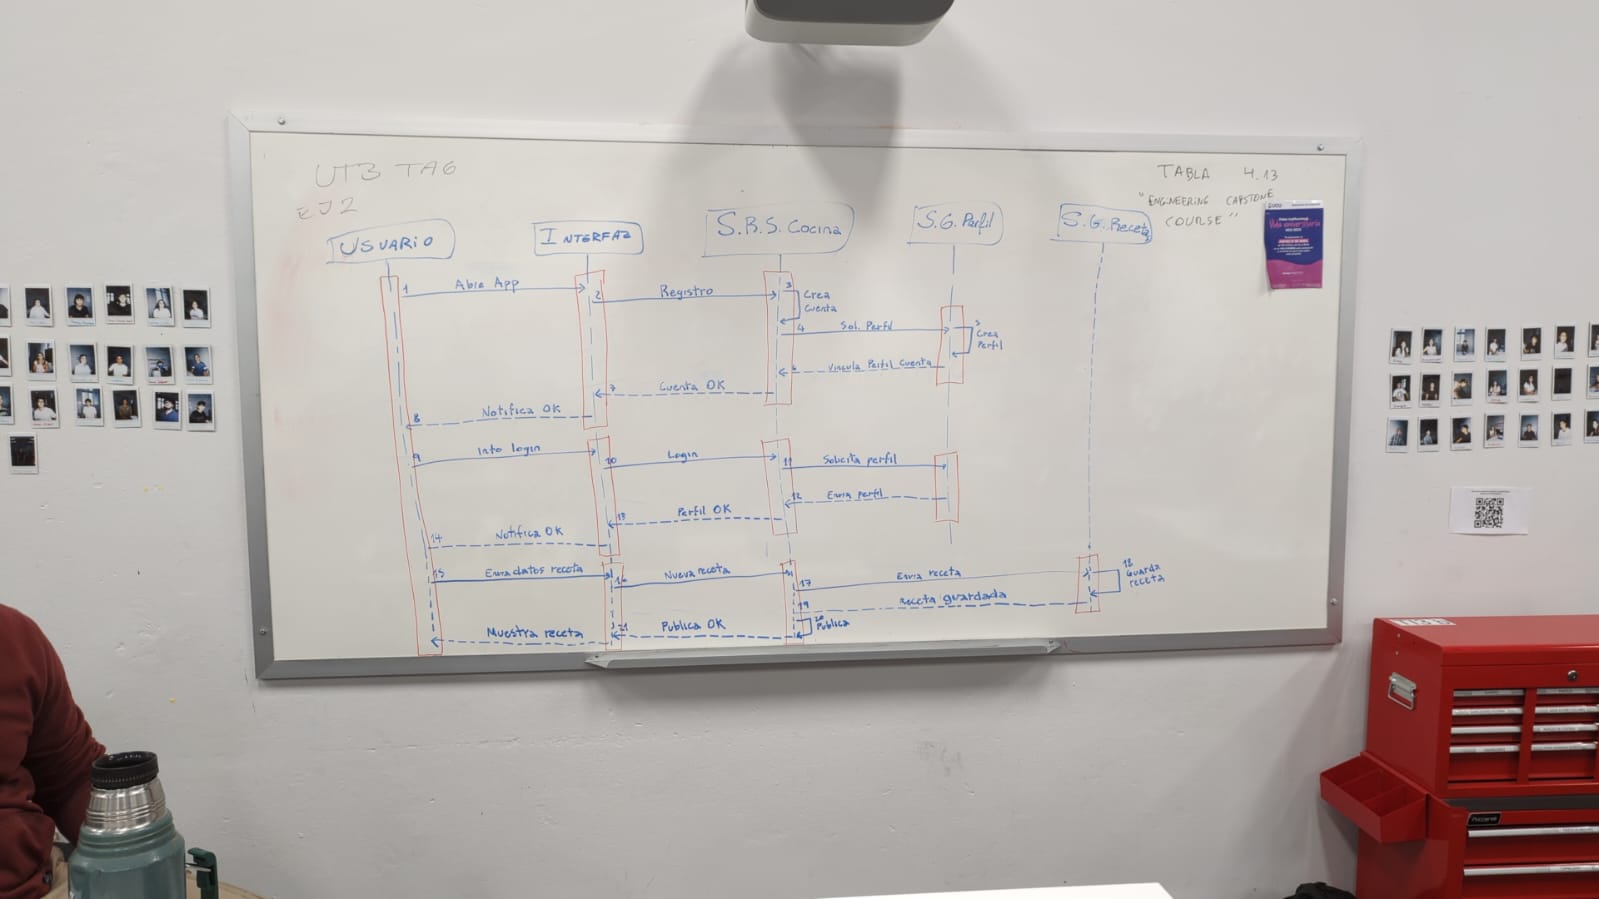 UT3 TA6
EJ2
TABLA 4.13
"ENGINEERING CAPSTONE
COURSE"
USUARIO
INTERFAZ
S.R.S. Cocina
S.G. Perfil
S.G. Receta
1 Abre App
2 Registro
3 Crea
Cuenta
4 Sol. Perfil
5 Crea
Perfil
6 Vincula Perfil Cuenta
7 Cuenta OK
8 Notifica OK
9 Into login
10 Login
11 Solicita perfil
12 Envia perfil
13 Perfil OK
14 Notifica OK
15 Envia datos receta
16 Nueva receta
17 Envia receta
18 Guarda
receta
19 Receta guardada
20 Publica
21 Publica OK
Muestra receta